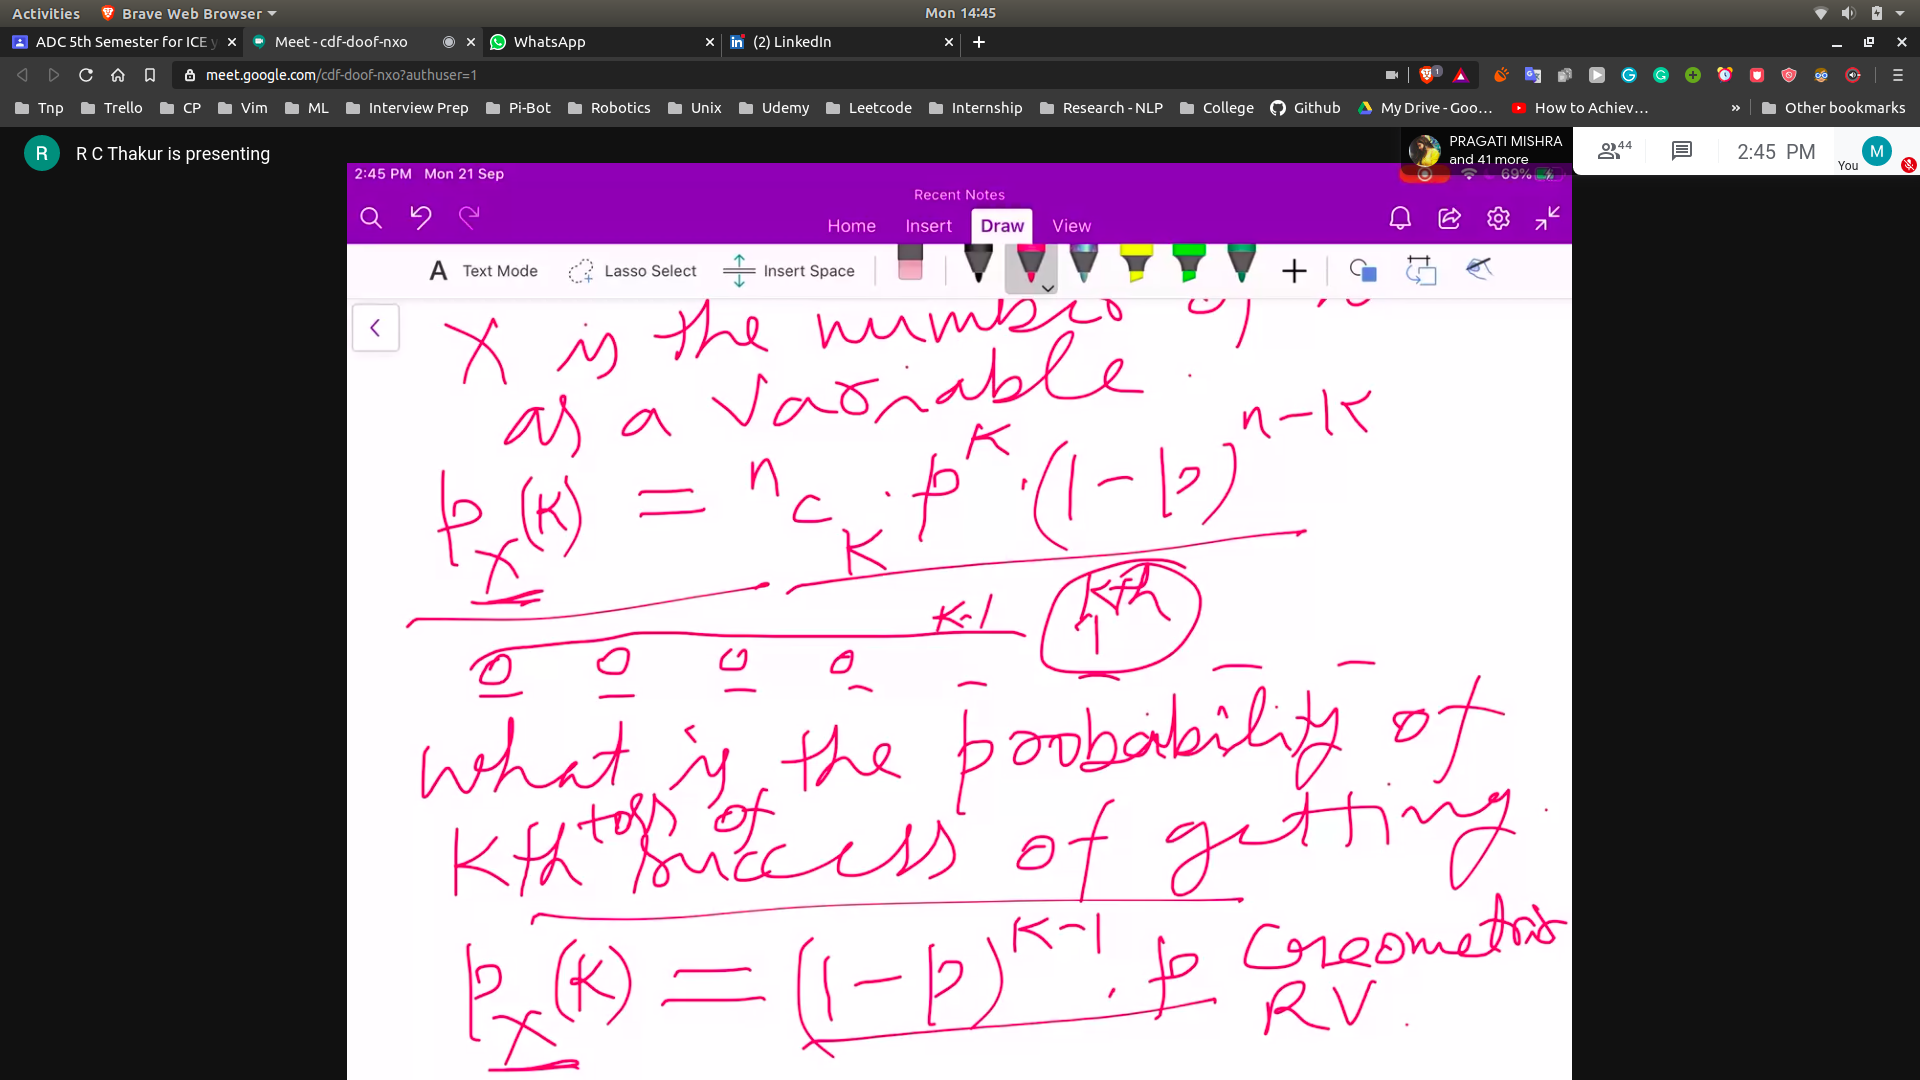 Activities Brave Web Browser Mon 14:45
ADC 5th Semester for ICE y Meet - cdf-doof-nxo WhatsApp (2) LinkedIn
meet.google.com/cdf-doof-nxo?authuser=1
Tnp Trello CP Vim ML Interview Prep Pi-Bot Robotics Unix Udemy Leetcode Internship Research - NLP College Github My Drive - Goo... How to Achiev... » Other bookmarks
R R C Thakur is presenting
PRAGATI MISHRA
and 41 more
44
2:45 PM
You M
2:45 PM Mon 21 Sep 69%
Recent Notes
Home Insert Draw View
A Text Mode Lasso Select Insert Space
X is the number of
as a variable.
p_X(K) = ⁿC_K . p^K . (1-p)^(n-K)
K-1 Kth
0 0 0 0 1
what is the probability of
Kth toss of success of getting.
p_X(K) = (1-p)^(K-1) . p Geometric
RV.